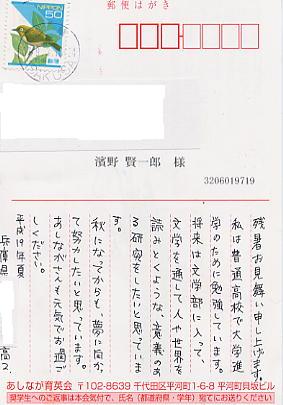 郵便はがき
NIPPON
50
濱野 賢一郎 様
3206019719
残暑お見舞い申し上げます。
私は普通高校で大学進
学のために勉強しています。
将来は文学部に入って、
文学を通して人や世界を
読みとくような、意義のあ
る研究をしたいと思っていま
す。
秋になってからも、夢に向か
って努力したいと思っています。
あしながさんも元気でお過ご
しください。
平成19年夏
兵庫県 高2
あしなが育英会 〒102-8639 千代田区平河町1-6-8 平河町貝坂ビル
奨学生へのご返事は本会気付で、氏名(都道府県・学年)宛てにお送りください